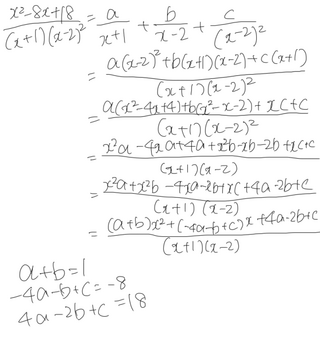 x²-8x+18/(x+1)(x-2)² = a/x+1 + b/x-2 + c/(x-2)²
= a(x-2)²+b(x+1)(x-2)+c(x+1)/(x+1)(x-2)²
= a(x²-4x+4)+b(x²-x-2)+xc+c/(x+1)(x-2)²
= x²a-4xa+4a+x²b-xb-2b+xc+c/(x+1)(x-2)
= x²a+x²b-4xa-2b+xc+4a-2b+c/(x+1)(x-2)
= (a+b)x²+(-4a-b+c)x+4a-2b+c/(x+1)(x-2)
a+b=1
-4a-b+c=-8
4a-2b+c=18